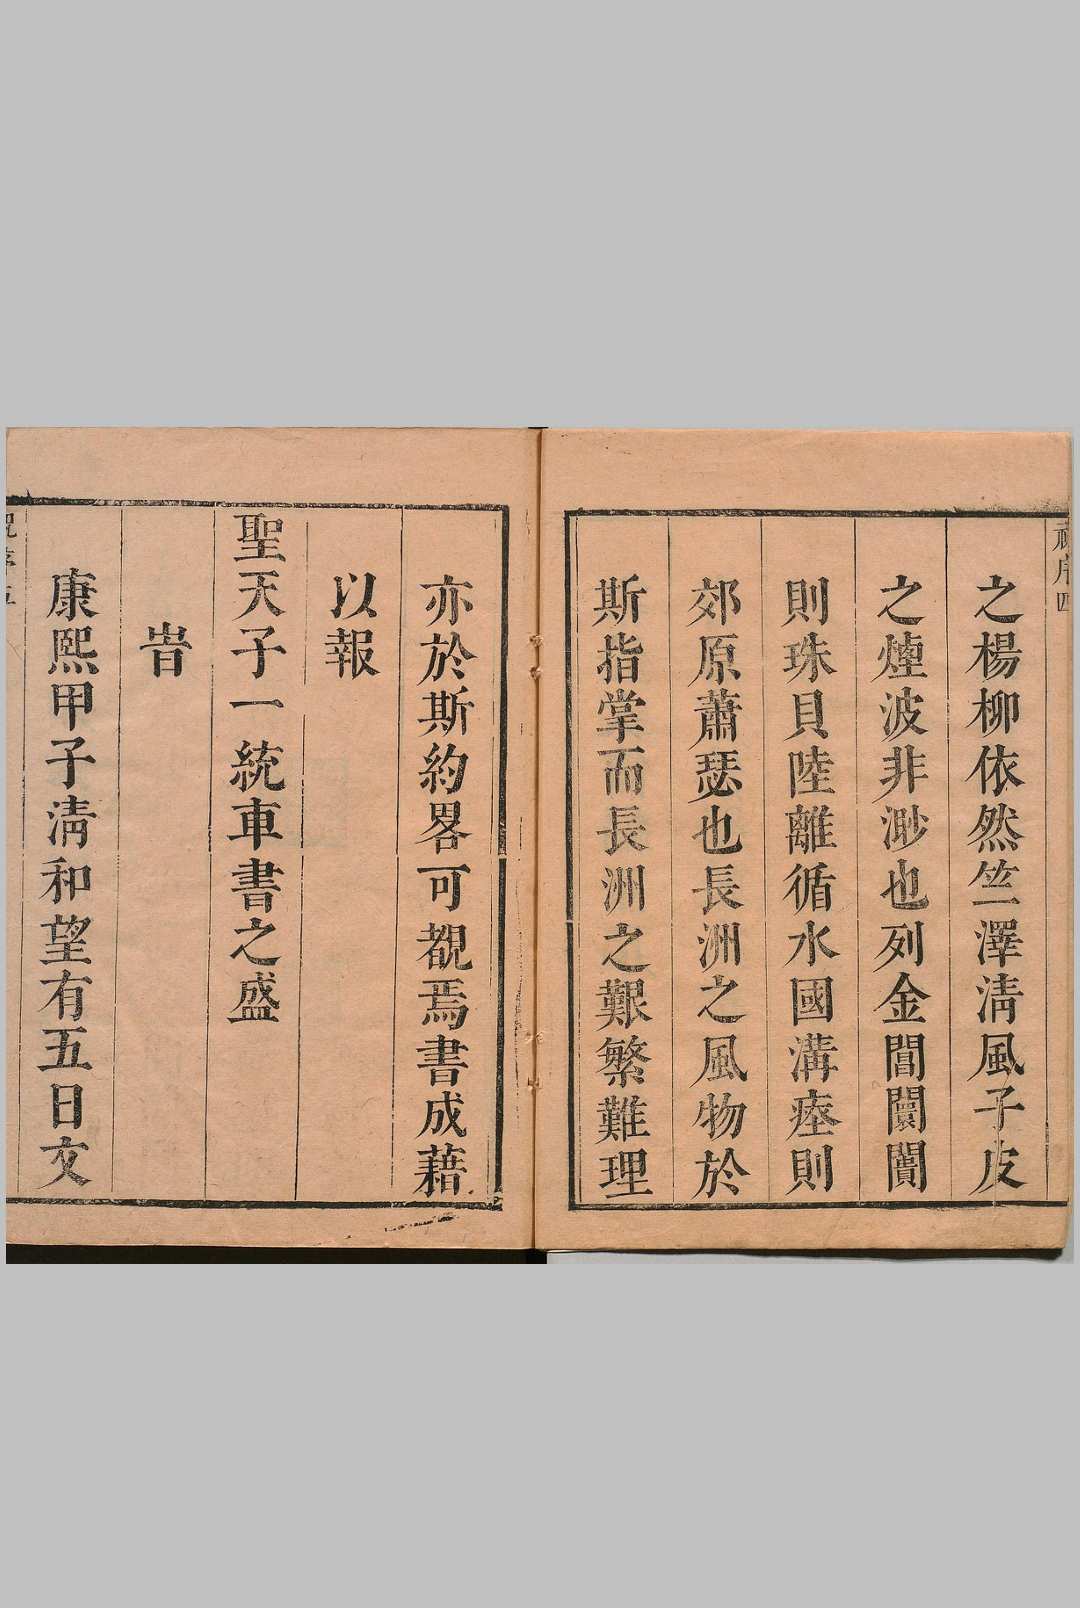 祝序四
之楊柳依然笠澤淸風子皮
之煙波非渺也列金閶闤闠
則珠貝陸離循水國溝塍則
郊原蕭瑟也長洲之風物於
斯指掌而長洲之艱繁難理
亦於斯約畧可覩焉書成藉
以報
聖天子一統車書之盛
旹
康熙甲子淸和望有五日文